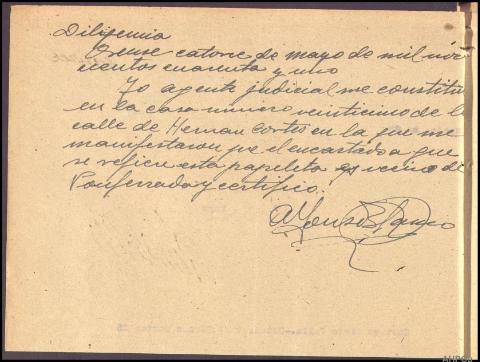 Diligencia
Orense catorce de mayo de mil nove
cientos cuarenta y uno
Yo agente judicial me constitui
en la casa numero veinticinco de la
calle de Hernan Cortes en la que me
manifestaron que el encartado a que
se refiere esta papeleta es vecino de
Ponferrada y certifico.
Alfonso Blanco